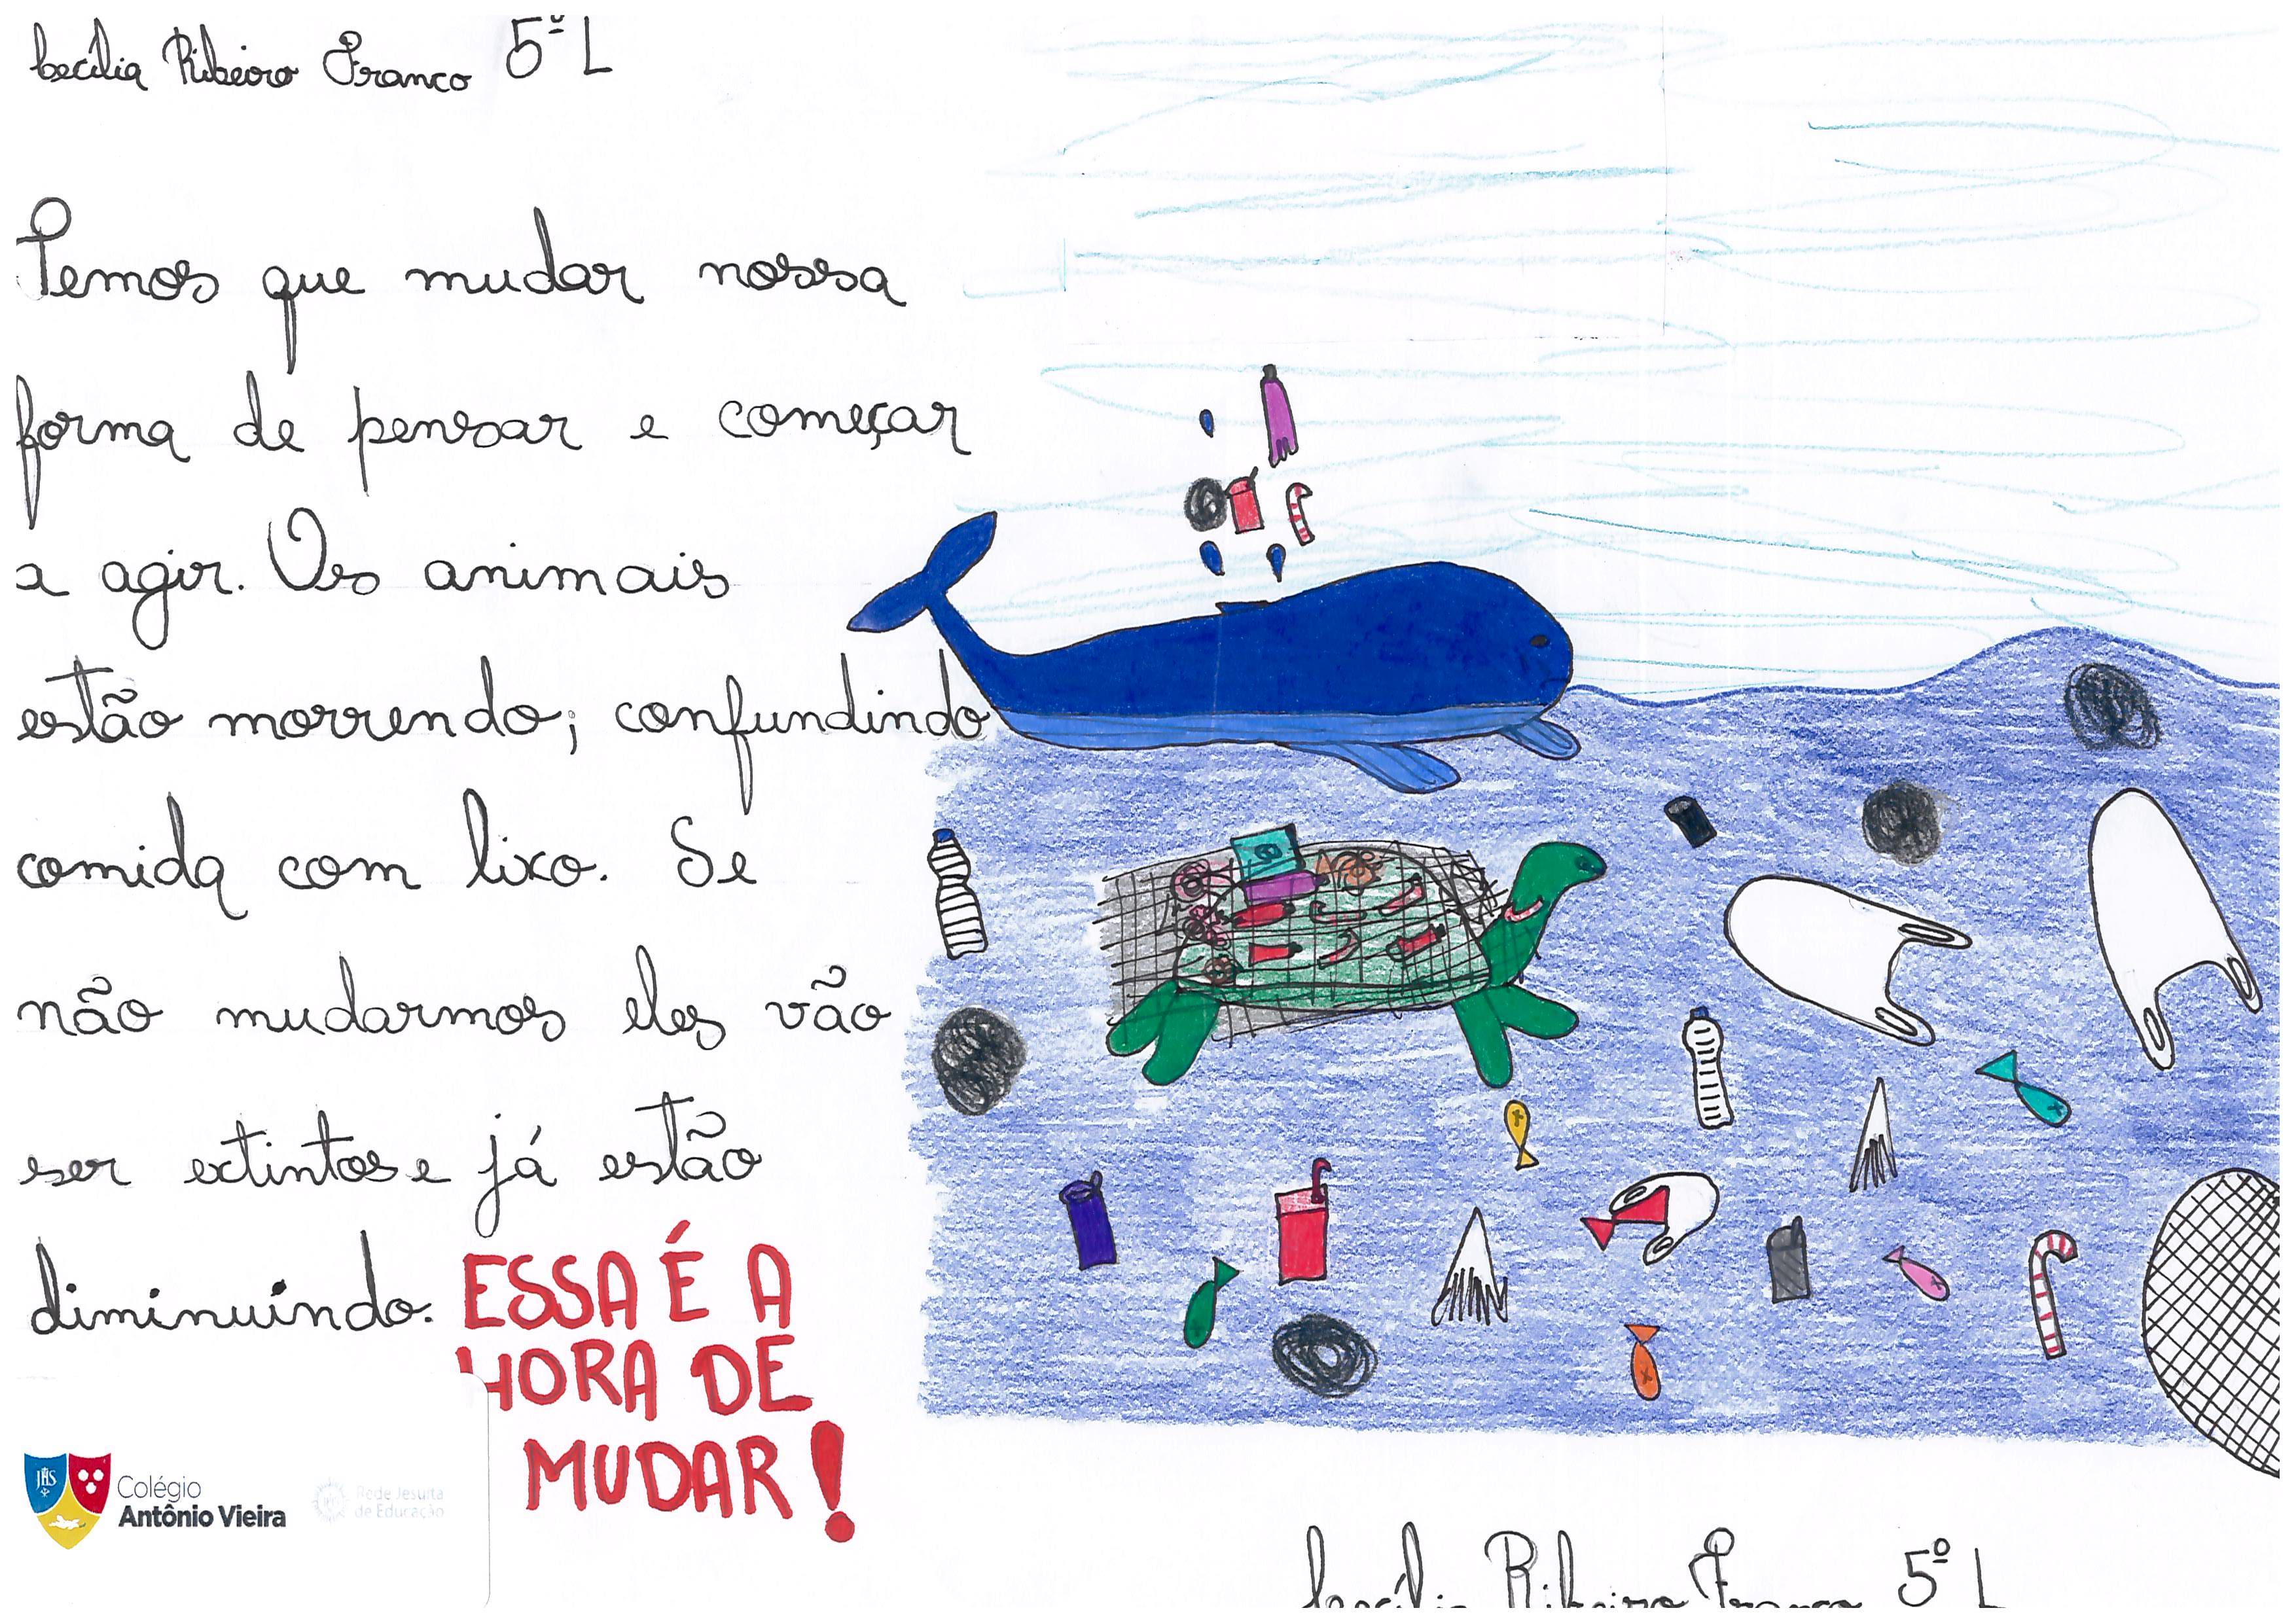 Cecília Ribeiro Franco 5º L
Temos que mudar nossa
forma de pensar e começar
a agir. Os animais
estão morrendo; confundindo
comida com lixo. Se
não mudarmos eles vão
ser extintos e já estão
diminuindo. ESSA É A
HORA DE
MUDAR!
JHS
Colégio
Antônio Vieira
Rede Jesuíta
de Educação
Cecília Ribeiro Franco 5º L